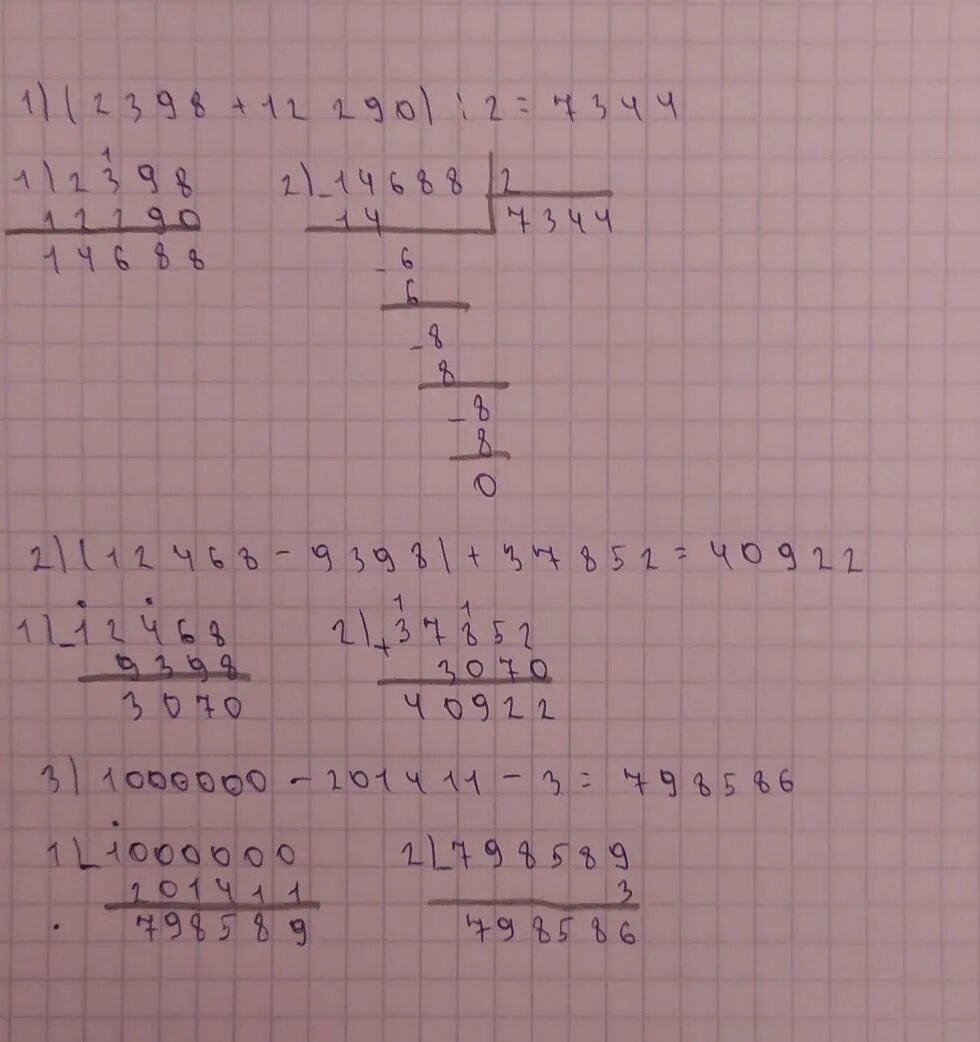 1) (2398 + 12 290) : 2 = 7344
1
1) 2398
12290
14688
2) - 14688 | 2
14 7344
- 6
6
- 8
8
- 8
8
0
2) (12468 - 9398) + 37852 = 40922
1) - 12468
9398
3070
1 1
2) + 37852
3070
40922
3) 1000000 - 201411 - 3 = 798586
1) - 1000000
201411
798589
2) - 798589
3
798586